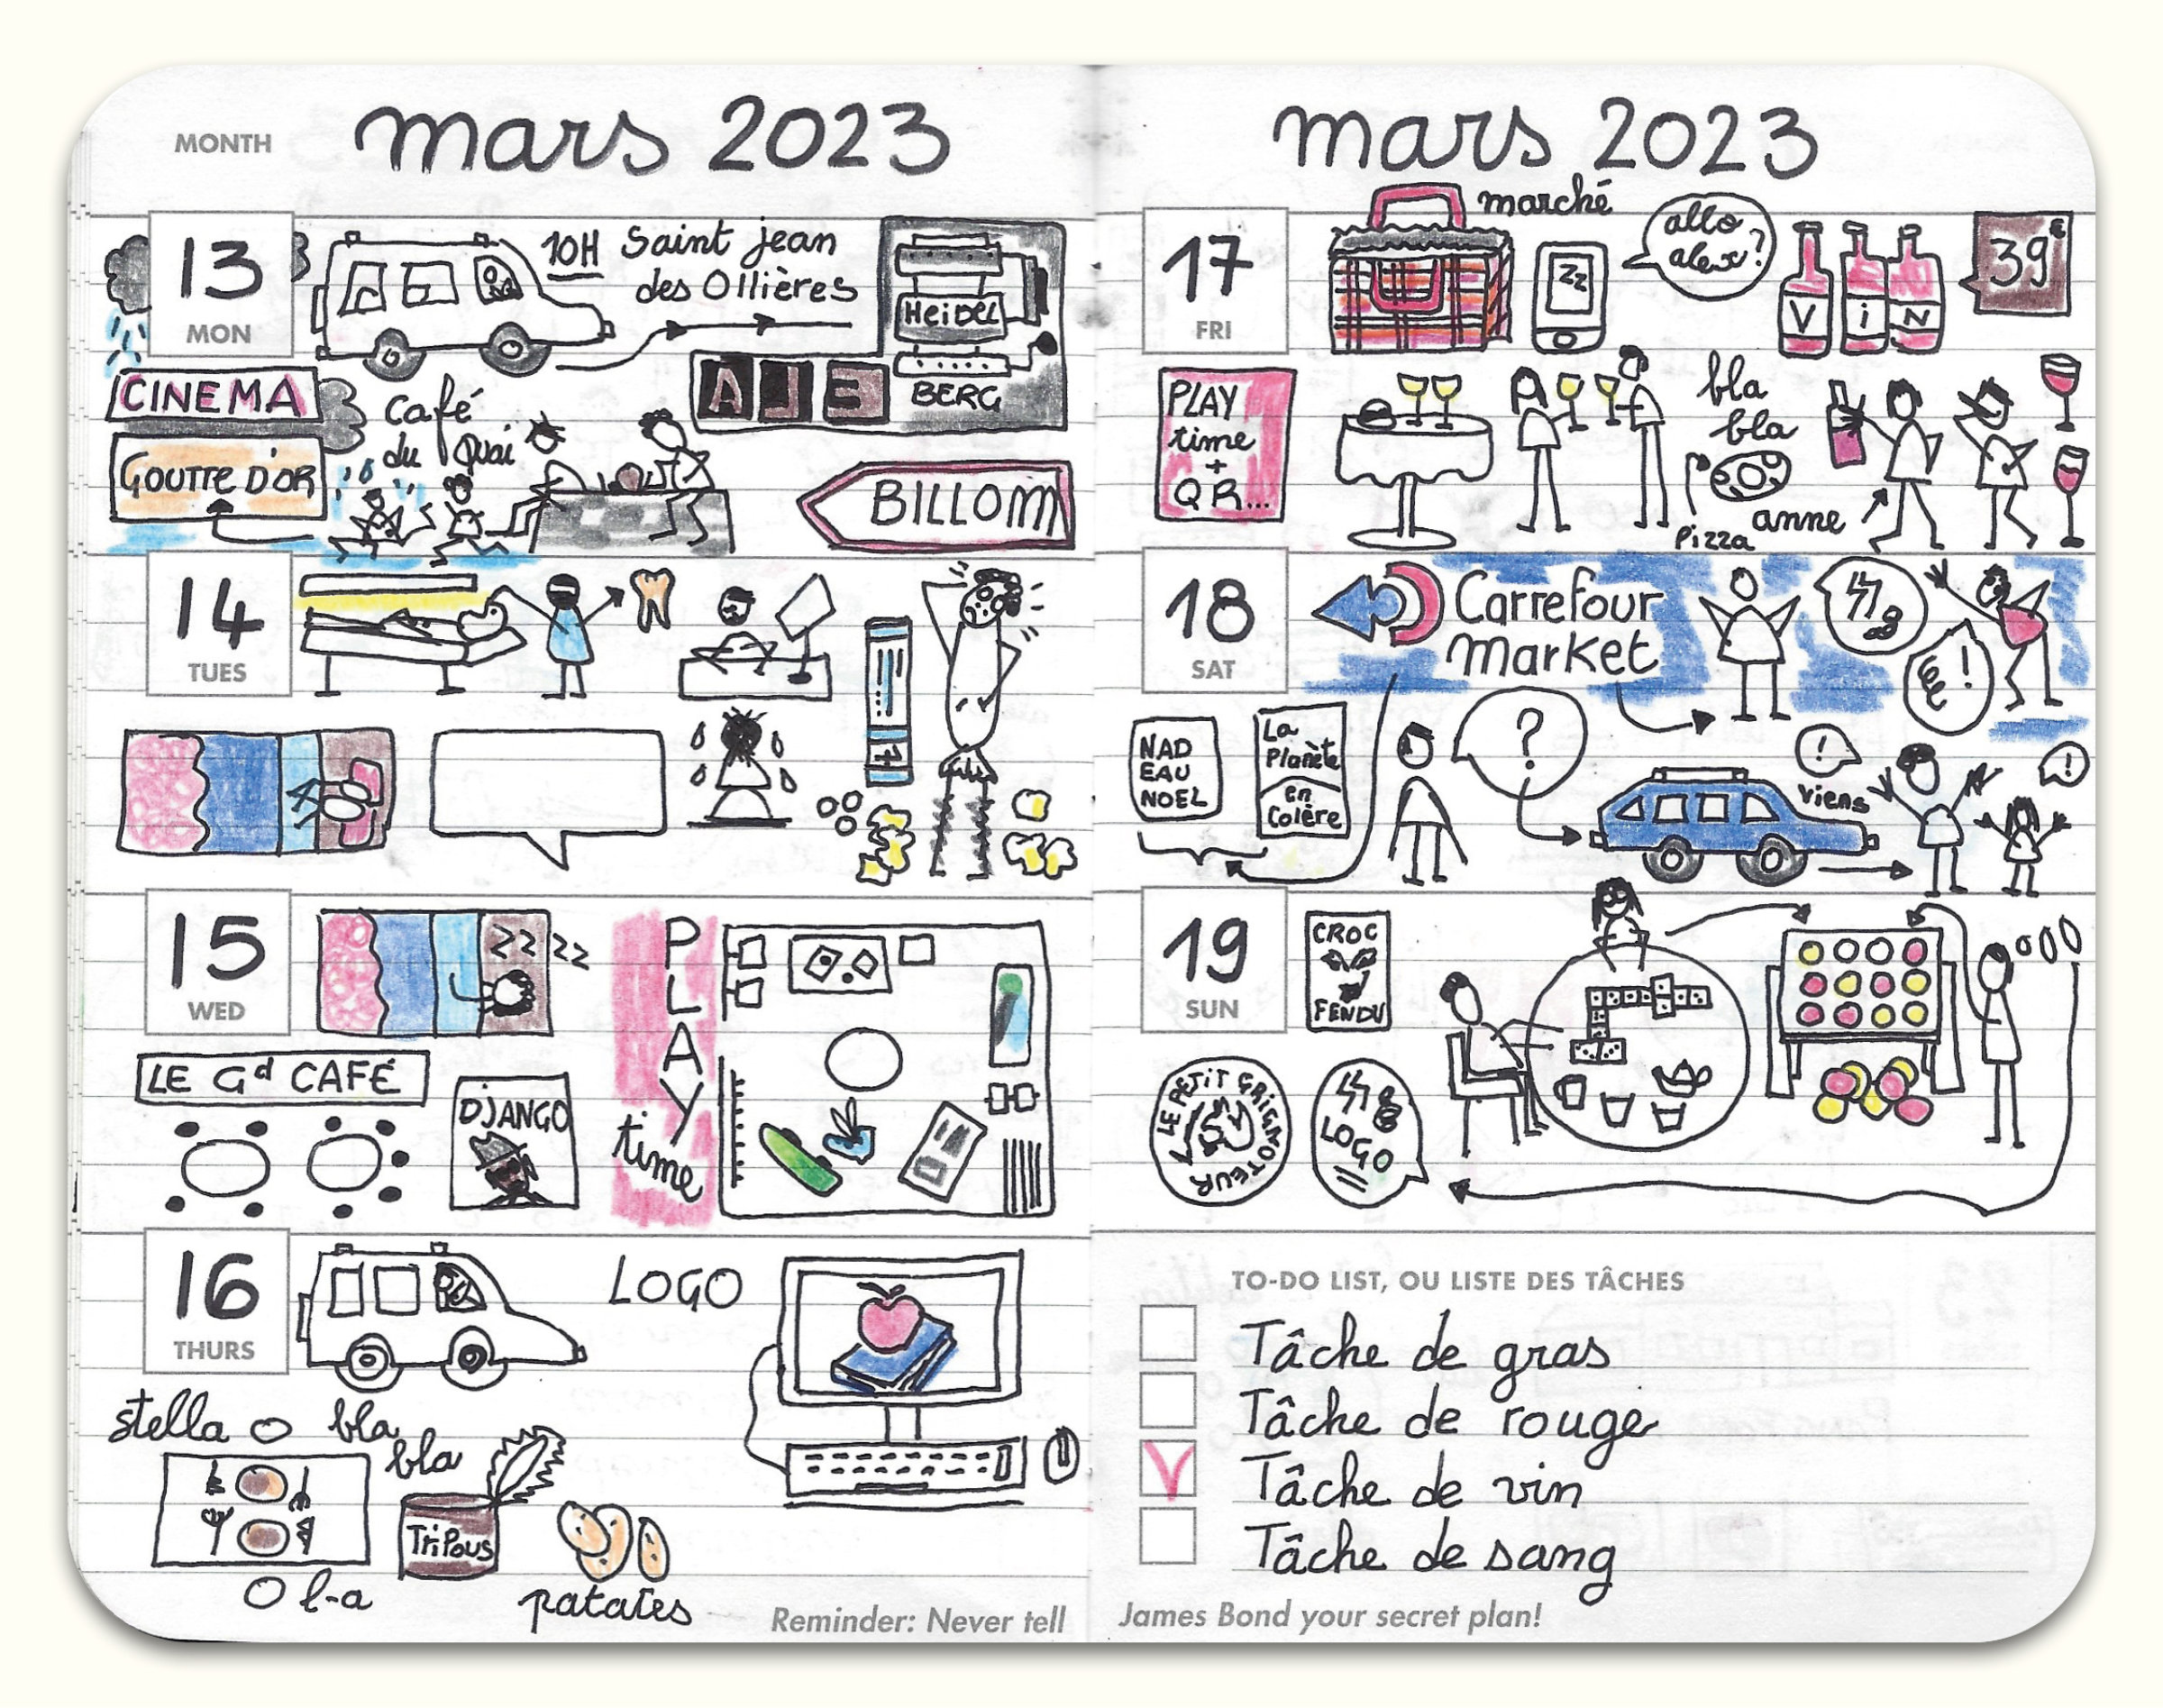 MONTH
mars 2023
13
MON
10H Saint jean
des Ollières
HEiDEL
BERG
CINEMA
GOUTTE D'OR
café
du Quai
BILLOM
14
TUES
15
WED
ZZZZ
PLAY
time
LE Gd CAFÉ
DJANGO
16
THURS
LOGO
stella O bla
bla
TriPous
O l-a
patates
Reminder: Never tell
mars 2023
17
FRI
marché
ZZ
allo
alex?
ViN
39€
PLAY
time
+
QR...
bla
bla
Pizza
anne
18
SAT
Carrefour
Market
!
NAD
EAU
NOEL
La
Planète
en
Colère
?
!
viens
!
19
SUN
CROC
FENDU
LE PETIT GRIGNOTEUR
LOGO
TO-DO LIST, OU LISTE DES TÂCHES
Tâche de gras
Tâche de rouge
V Tâche de vin
Tâche de sang
James Bond your secret plan!